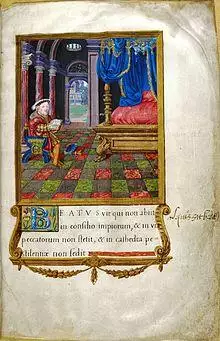 BEATUS vir qui non abiit
in consilio impiorum, & in via
peccatorum non stetit, & in cathedra pe-
stilentiæ non sedit